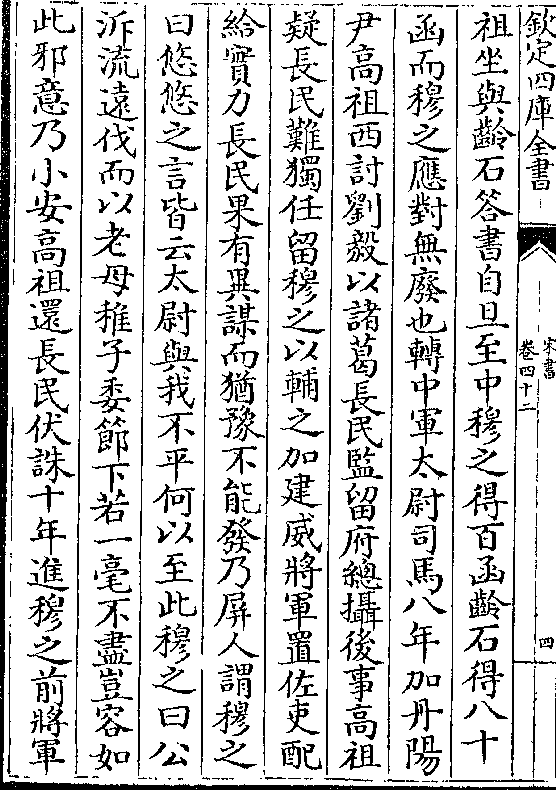 欽定四庫全書
宋書
卷四十二
四
祖坐與齡石答書自旦至中穆之得百函齡石得八十
函而穆之應對無廢也轉中軍太尉司馬八年加丹陽
尹高祖西討劉毅以諸葛長民監留府總攝後事高祖
疑長民難獨任留穆之以輔之加建威將軍置佐吏配
給實力長民果有異謀而猶豫不能發乃屏人謂穆之
曰悠悠之言皆云太尉與我不平何以至此穆之曰公
泝流遠伐而以老母稚子委節下若一毫不盡豈容如
此邪意乃小安高祖還長民伏誅十年進穆之前將軍